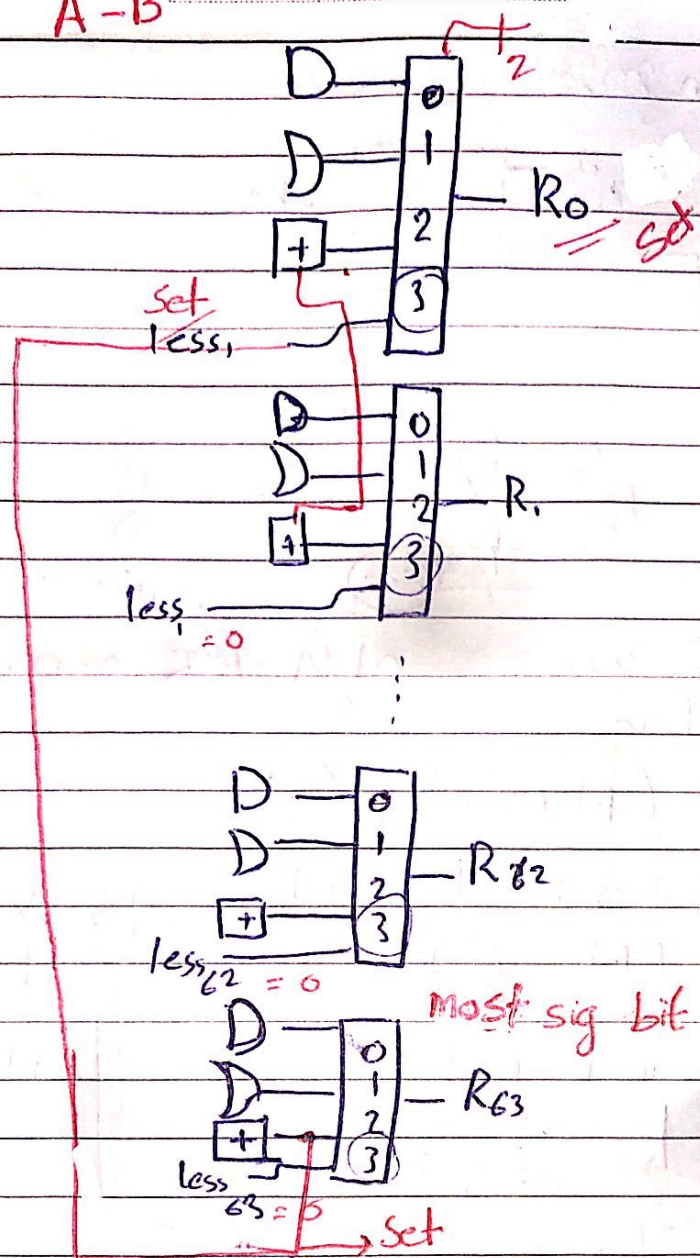 A-B
2
0
1
2
+
3
R0
= set
Set
less1
0
1
2
+
3
R1
less1
= 0
0
1
2
+
3
R62
less62 = 0
most sig bit
0
1
2
+
3
R63
less
63 = 0
set